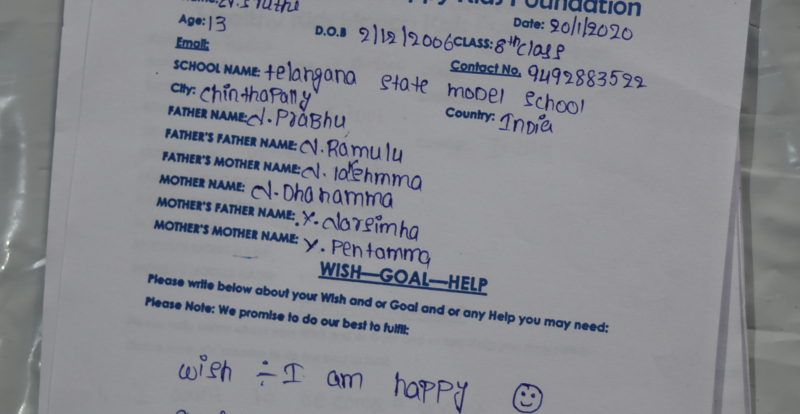 Kids Foundation
Date: 20/1/2020
Age: 13 D.O.B 2/12/2006 CLASS: 8th class
Email: Contact No. 9492883522
SCHOOL NAME: telangana state model school
City: chinthapally Country: India
FATHER NAME: N. Prabhu
FATHER'S FATHER NAME: N. Ramulu
FATHER'S MOTHER NAME: N.
MOTHER NAME: N. Dhanamma
MOTHER'S FATHER NAME: Y. Narsimha
MOTHER'S MOTHER NAME: Y. Pentamma
WISH—GOAL—HELP
Please write below about your Wish and or Goal and or any Help you may need:
Please Note: We promise to do our best to fulfil:
wish ÷ I am happy ☺